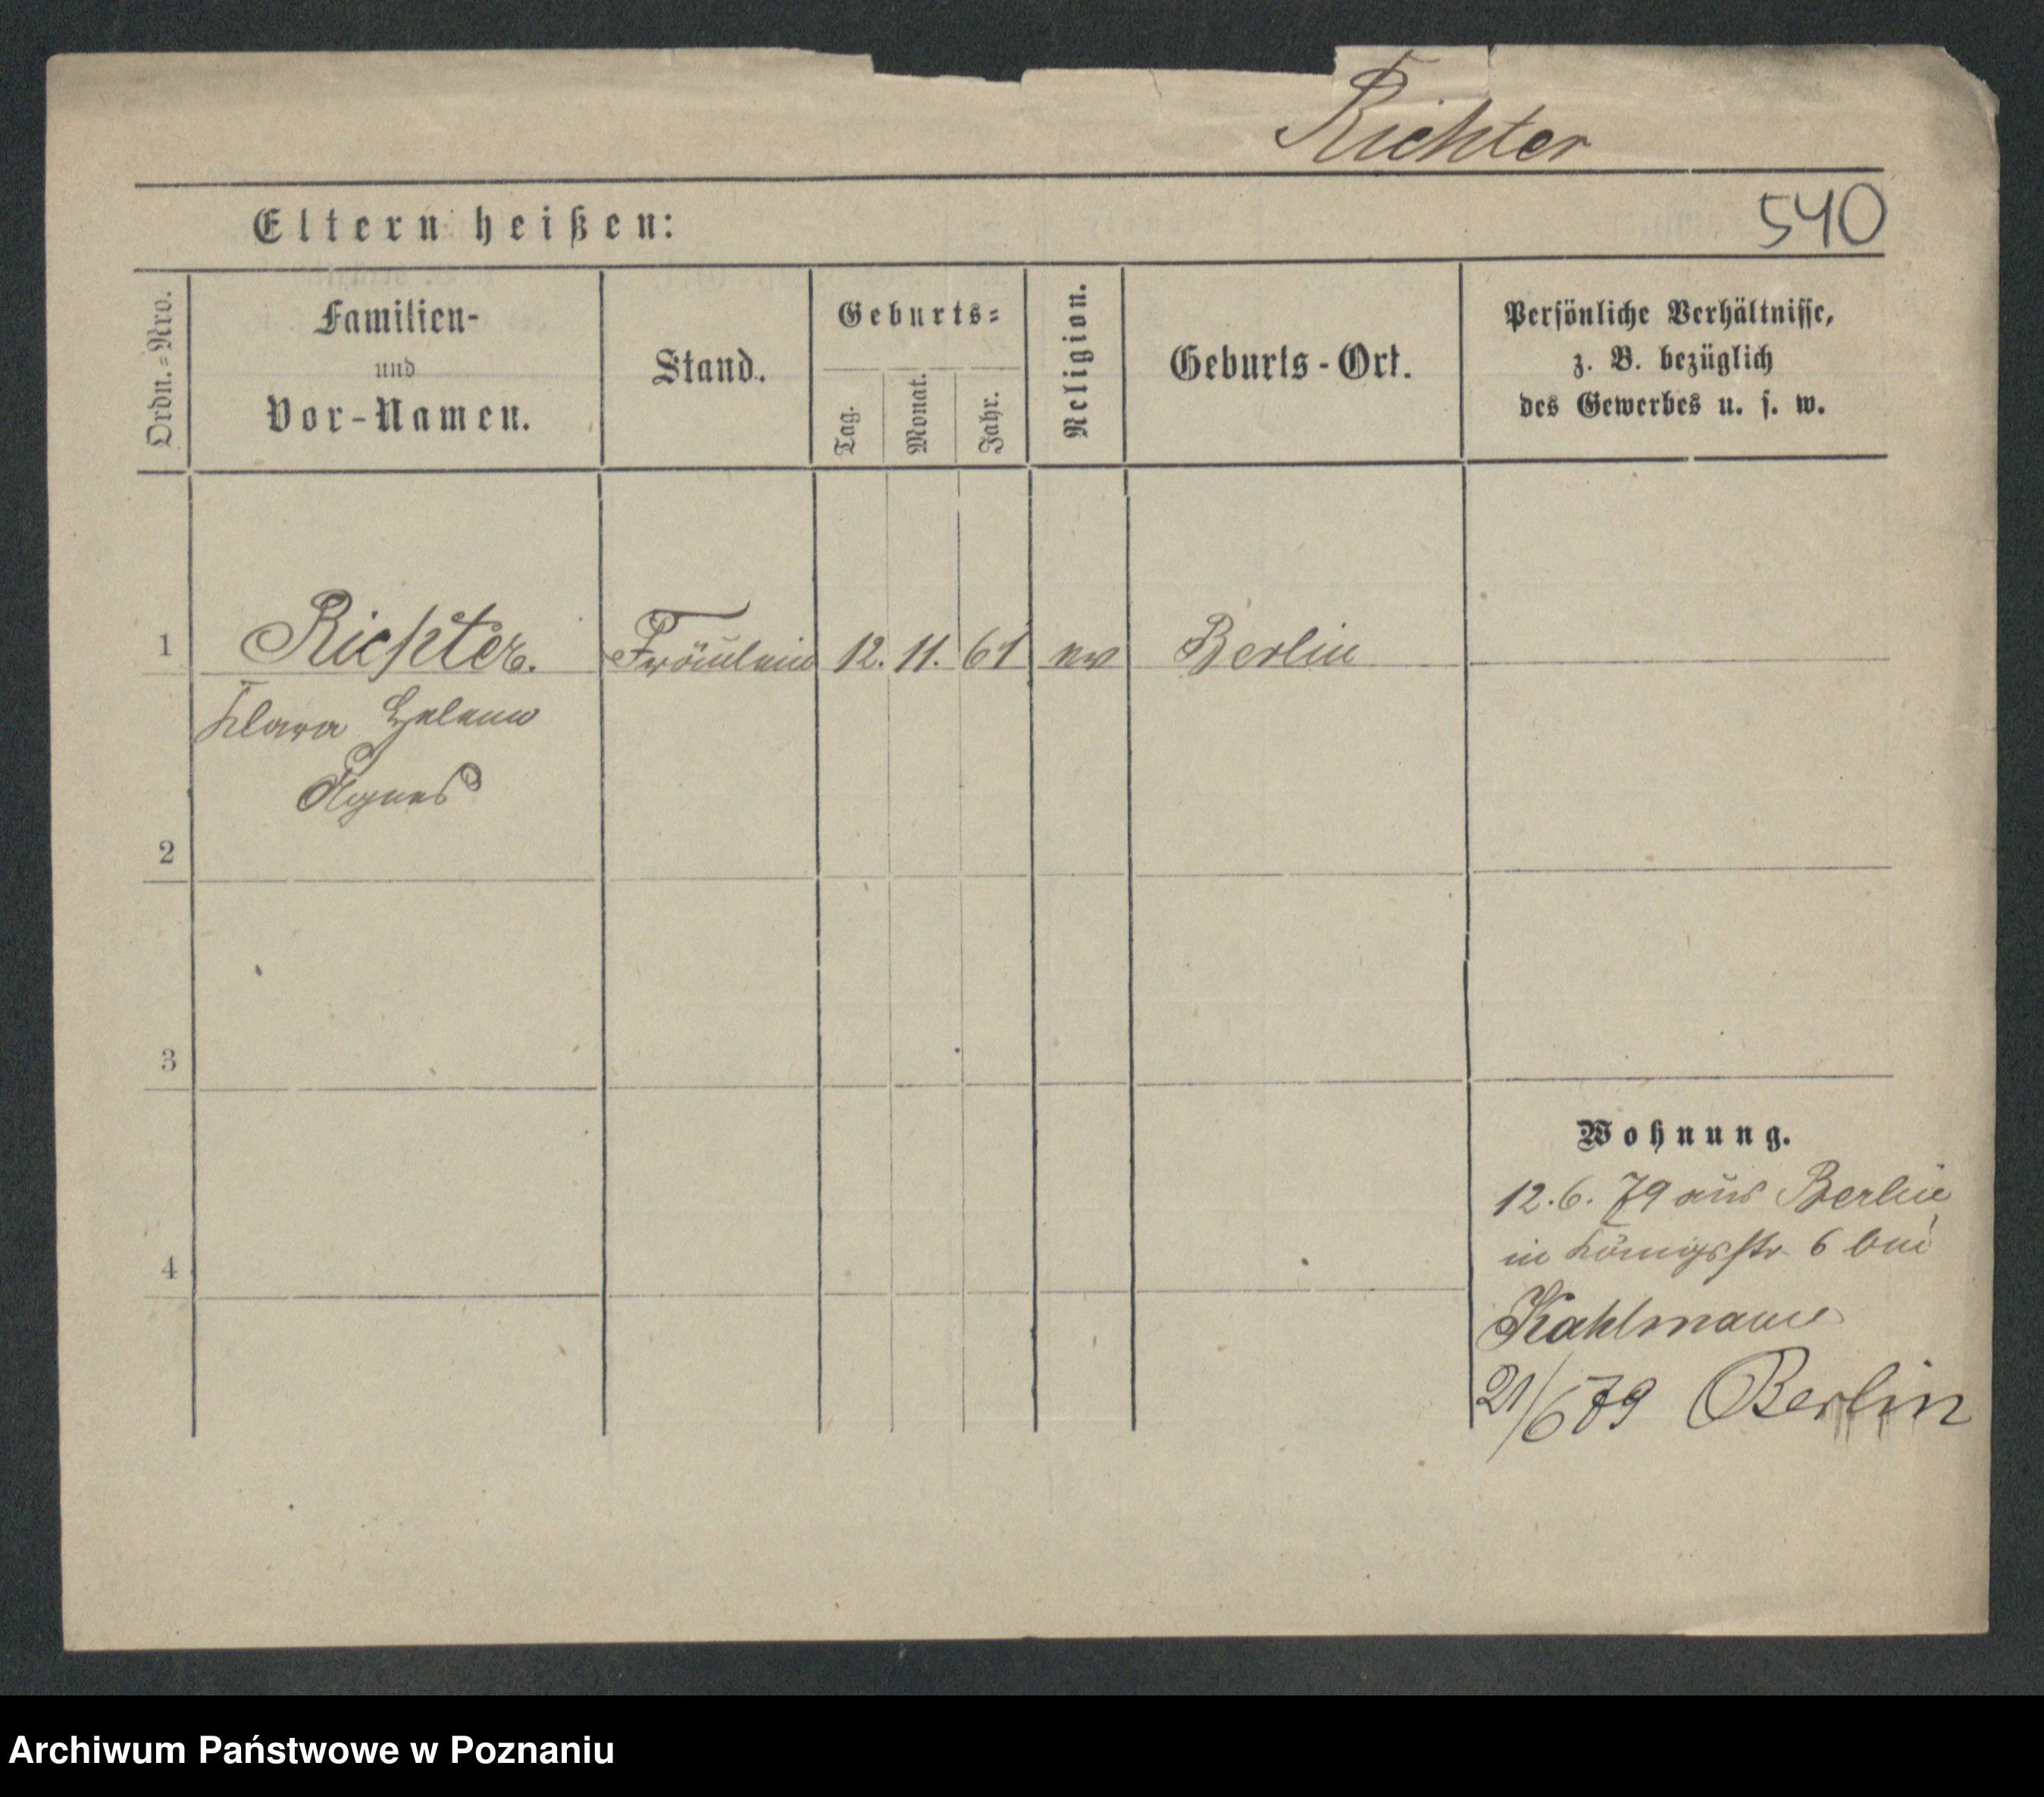 Richter
Eltern heißen:
540
Ordn.=Nro.
Familien-
und
Vor-Namen.
Stand.
Geburts=
Tag.
Monat.
Jahr.
Religion.
Geburts-Ort.
Persönliche Verhältnisse,
z. B. bezüglich
des Gewerbes u. s. w.
1 Richter. Fräulein 12. 11. 61 ev Berlin
Klara Helene
Agnes
2
3
Wohnung.
12.6.79 aus Berlin
in Königsstr. 6 bei
4
Kahlmann
21/6 79 Berlin
Archiwum Państwowe w Poznaniu